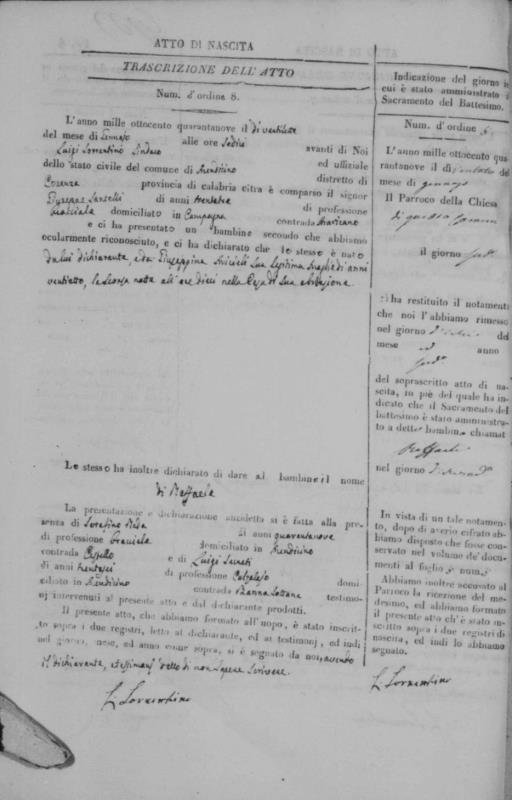 ATTO DI NASCITA
TRASCRIZIONE DELL'ATTO
Num. d'ordine 8.
L'anno mille ottocento quarantanove il dì ventisette
del mese di Gennajo alle ore sedici
Luigi Sorrentino Sindaco avanti di Noi
ed uffiziale
dello stato civile del comune di Mendicino
distretto di
Cosenza provincia di calabria citra è comparso il signor
Giuseppe di anni trentatre
di professione
domiciliato in contrada
e ci ha presentato un bambino secondo che abbiamo
ocularmente riconosciuto, e ci ha dichiarato che lo stesso è nato
da lui dichiarante, e da Giuseppina sua legittima moglie di anni
ventiotto, la scorsa notte all'ore dieci nella casa di sua abitazione.
Lo stesso ha inoltre dichiarato di dare al bambino il nome
di Raffaele
La presentazione e dichiarazione anzidetta si è fatta alla pre-
senza di Serafino
di anni quarantanove
di professione domiciliato in Mendicino
contrada e di Luigi
di anni di professione Calzolajo domi-
ciliato in Mendicino contrada testimo-
nj intervenuti al presente atto e dal dichiarante prodotti.
Il presente atto, che abbiamo formato all'uopo, è stato inscrit-
to sopra i due registri, letto al dichiarante, ed ai testimonj, ed indi
nel giorno, mese, ed anno come sopra, si è segnato da noi, avendo
il dichiarante, e testimonj detto di non sapere scrivere.
L. Sorrentino
Indicazione del giorno in
cui è stato amministrato il
Sacramento del Battesimo.
Num. d'ordine
L'anno mille ottocento qua-
rantanove il dì
mese di gennajo
Il Parroco della Chiesa
di questo comune
il giorno
ci ha restituito il notamento
che noi l'abbiamo rimesso
nel giorno del
mese ed anno
del soprascritto atto di na-
scita, in piè del quale ha in-
dicato che il Sacramento del
battesimo è stato amministra-
to a detto bambino chiamat
Raffaele
nel giorno
In vista di un tale notamen-
to, dopo di averlo cifrato ab-
biamo disposto che fosse con-
servato nel volume de' docu-
menti al foglio 5 num. 5
Abbiamo inoltre accusato al
Parroco la ricezione del me-
desimo, ed abbiamo formato
il presente atto ch'è stato in-
scritto sopra i due registri di
nascita, ed indi lo abbiamo
segnato.
L. Sorrentino